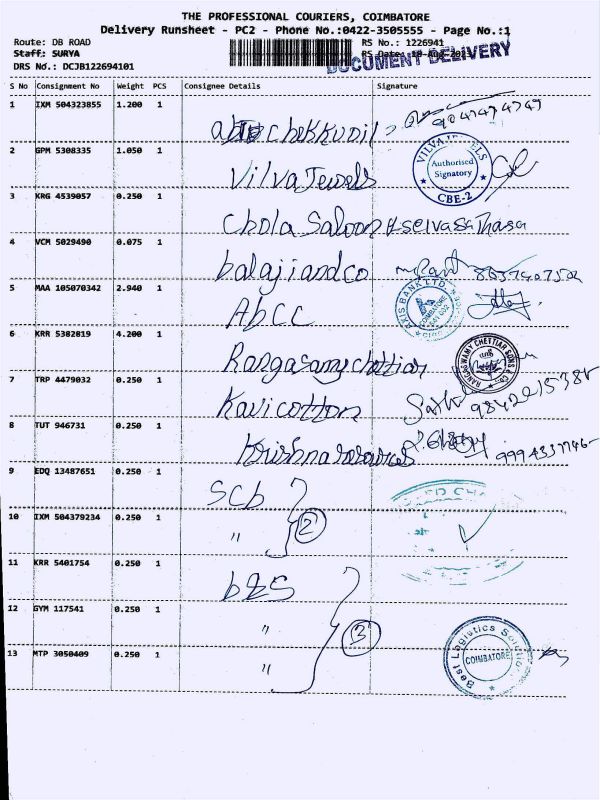 THE PROFESSIONAL COURIERS, COIMBATORE
Delivery Runsheet - PC2 - Phone No.:0422-3505555 - Page No.:1
Route: DB ROAD RS No.: 1226941
Staff: SURYA RS Date: 18-Aug-
DOCUMENT DELIVERY
DRS No.: DCJB122694101
S No Consignment No Weight PCS Consignee Details Signature
1 IXM 504323855 1.200 1 chekkudil
2 GPM 5308335 1.050 1 Vilva Jewels
VILVA JEWELS Authorised Signatory CBE-2
3 KRG 4539057 0.250 1 Chola Saloon
4 VCM 5029490 0.075 1 balajiandco
5 MAA 105070342 2.940 1 AbCC
AXIS BANK LTD. COIMBATORE
6 KRR 5382819 4.200 1 Rangasamy chettiar
RANGASWAMY CHETTIAR SONS & Co.
7 TRP 4479032 0.250 1 Kavicotton
8 TUT 946731 0.250 1
9 EDQ 13487651 0.250 1 SCb
10 IXM 504379234 0.250 1 " 2
11 KRR 5401754 0.250 1
12 GYM 117541 0.250 1 " 3
13 MTP 3050409 0.250 1 "
Best Logistics Solution COIMBATORE